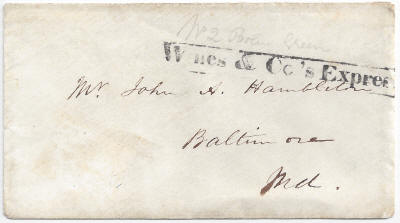 No 2 Green
Wines & Co's Expres
Mr. John A. Hambleton
Baltimore
Md.